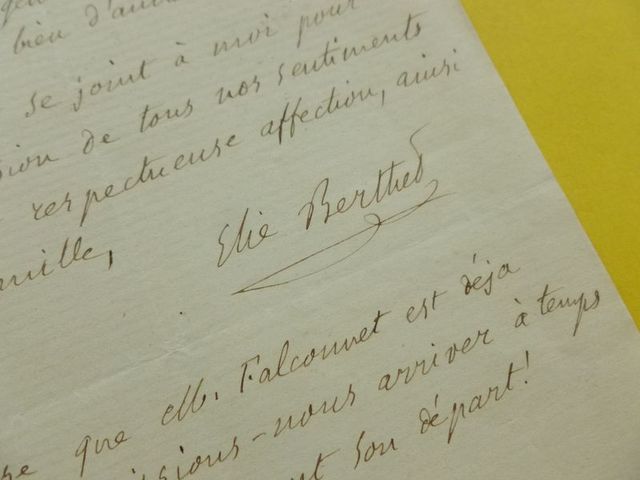 bien d'au
se joint à moi pour
sion de tous nos sentiments
respectueuse affection, ainsi
mille,
Elie Berthet
que M. Falconnet est déja
ssions-nous arriver à temps
nt son départ!